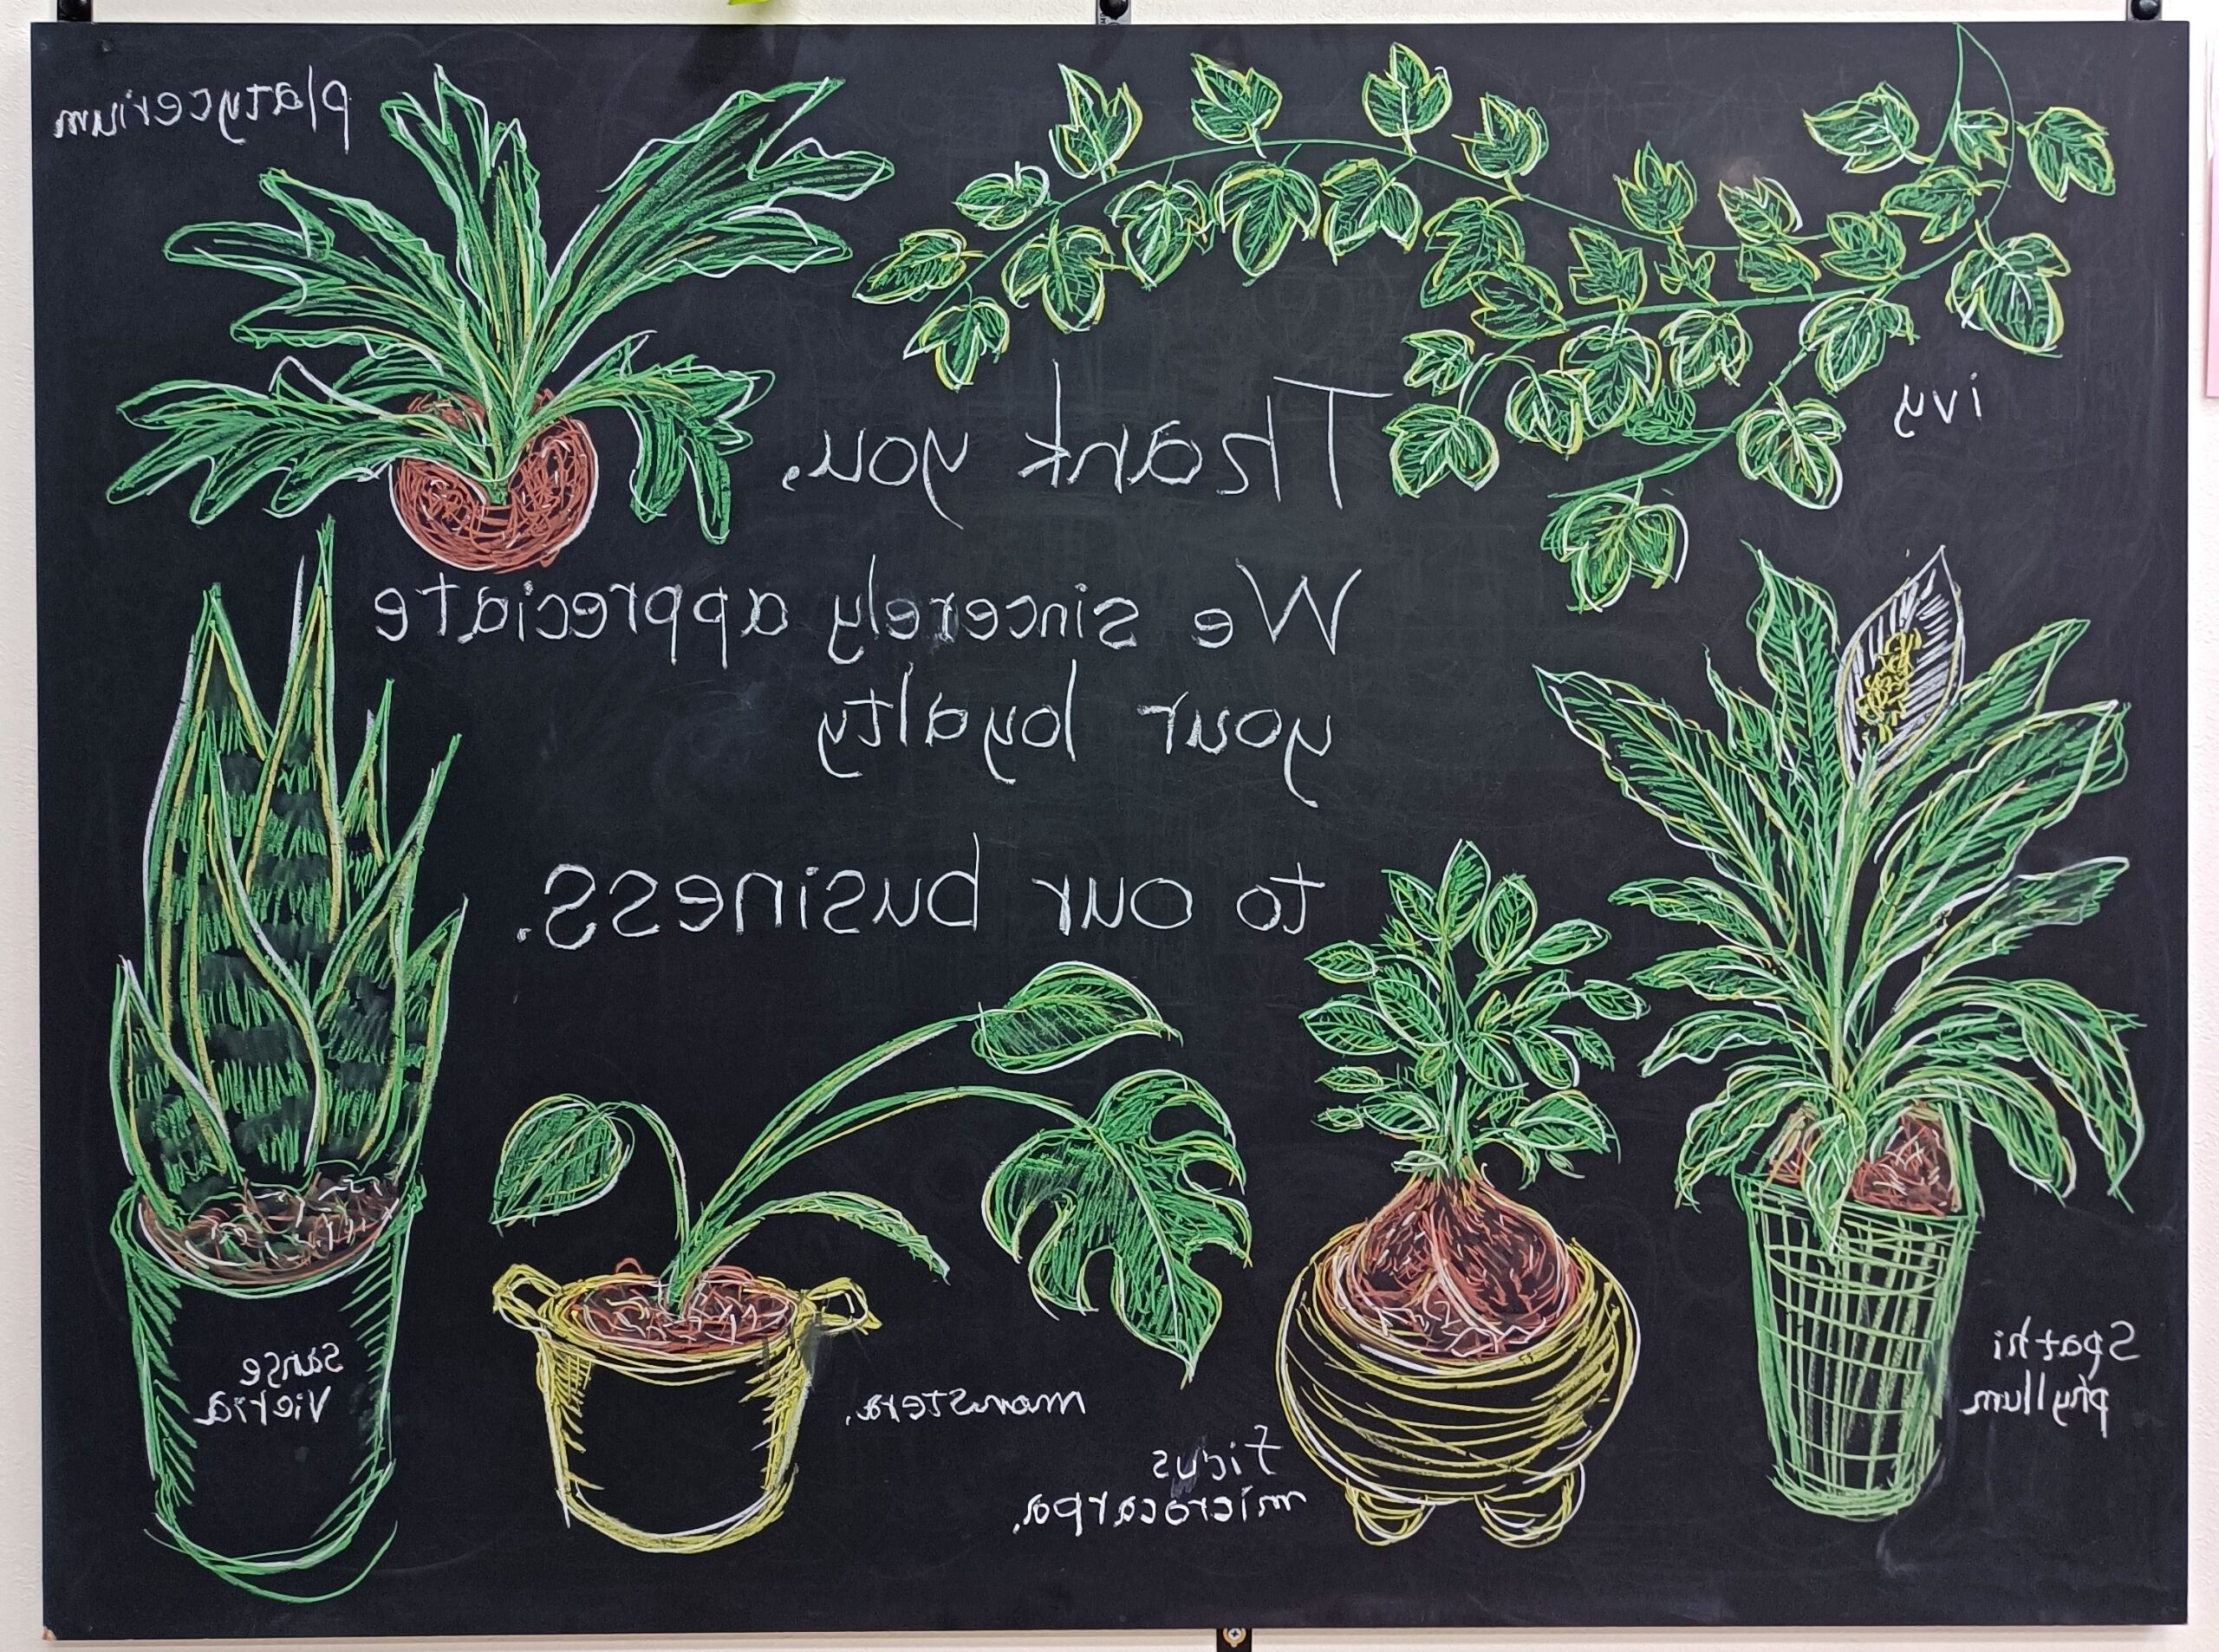 platycerium
ivy
Thank you.
We sincerely appreciate
your loyalty
to our business.
Spathi
phyllum
sanse
Vieria
monstera.
ficus
microcarpa.